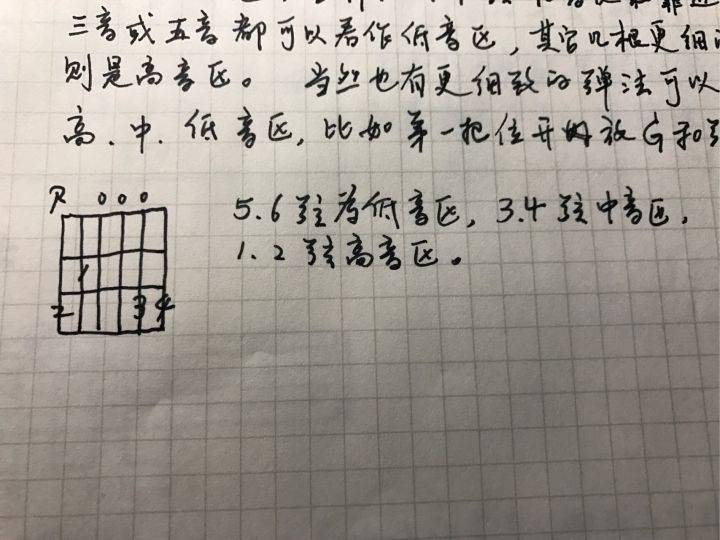 三音或五音都可以看作低音区，其它几根更细的
则是高音区。 当然也有更细致的弹法可以
高、中、低音区，比如第一把位开放G和弦
R 0 0 0
5.6弦为低音区，3.4弦中音区，
1.2弦高音区。
1
2 3 4